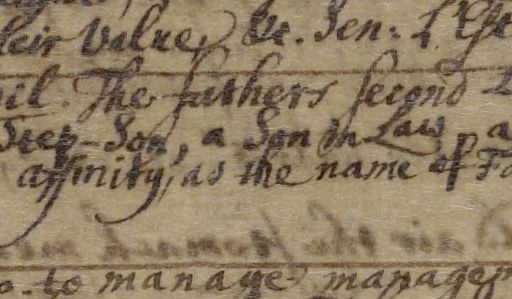 their Value, &c. Sen: L
The fathers second
Step-Son, a Son in Law, a
affinity, as the name of Fa
to manage manager